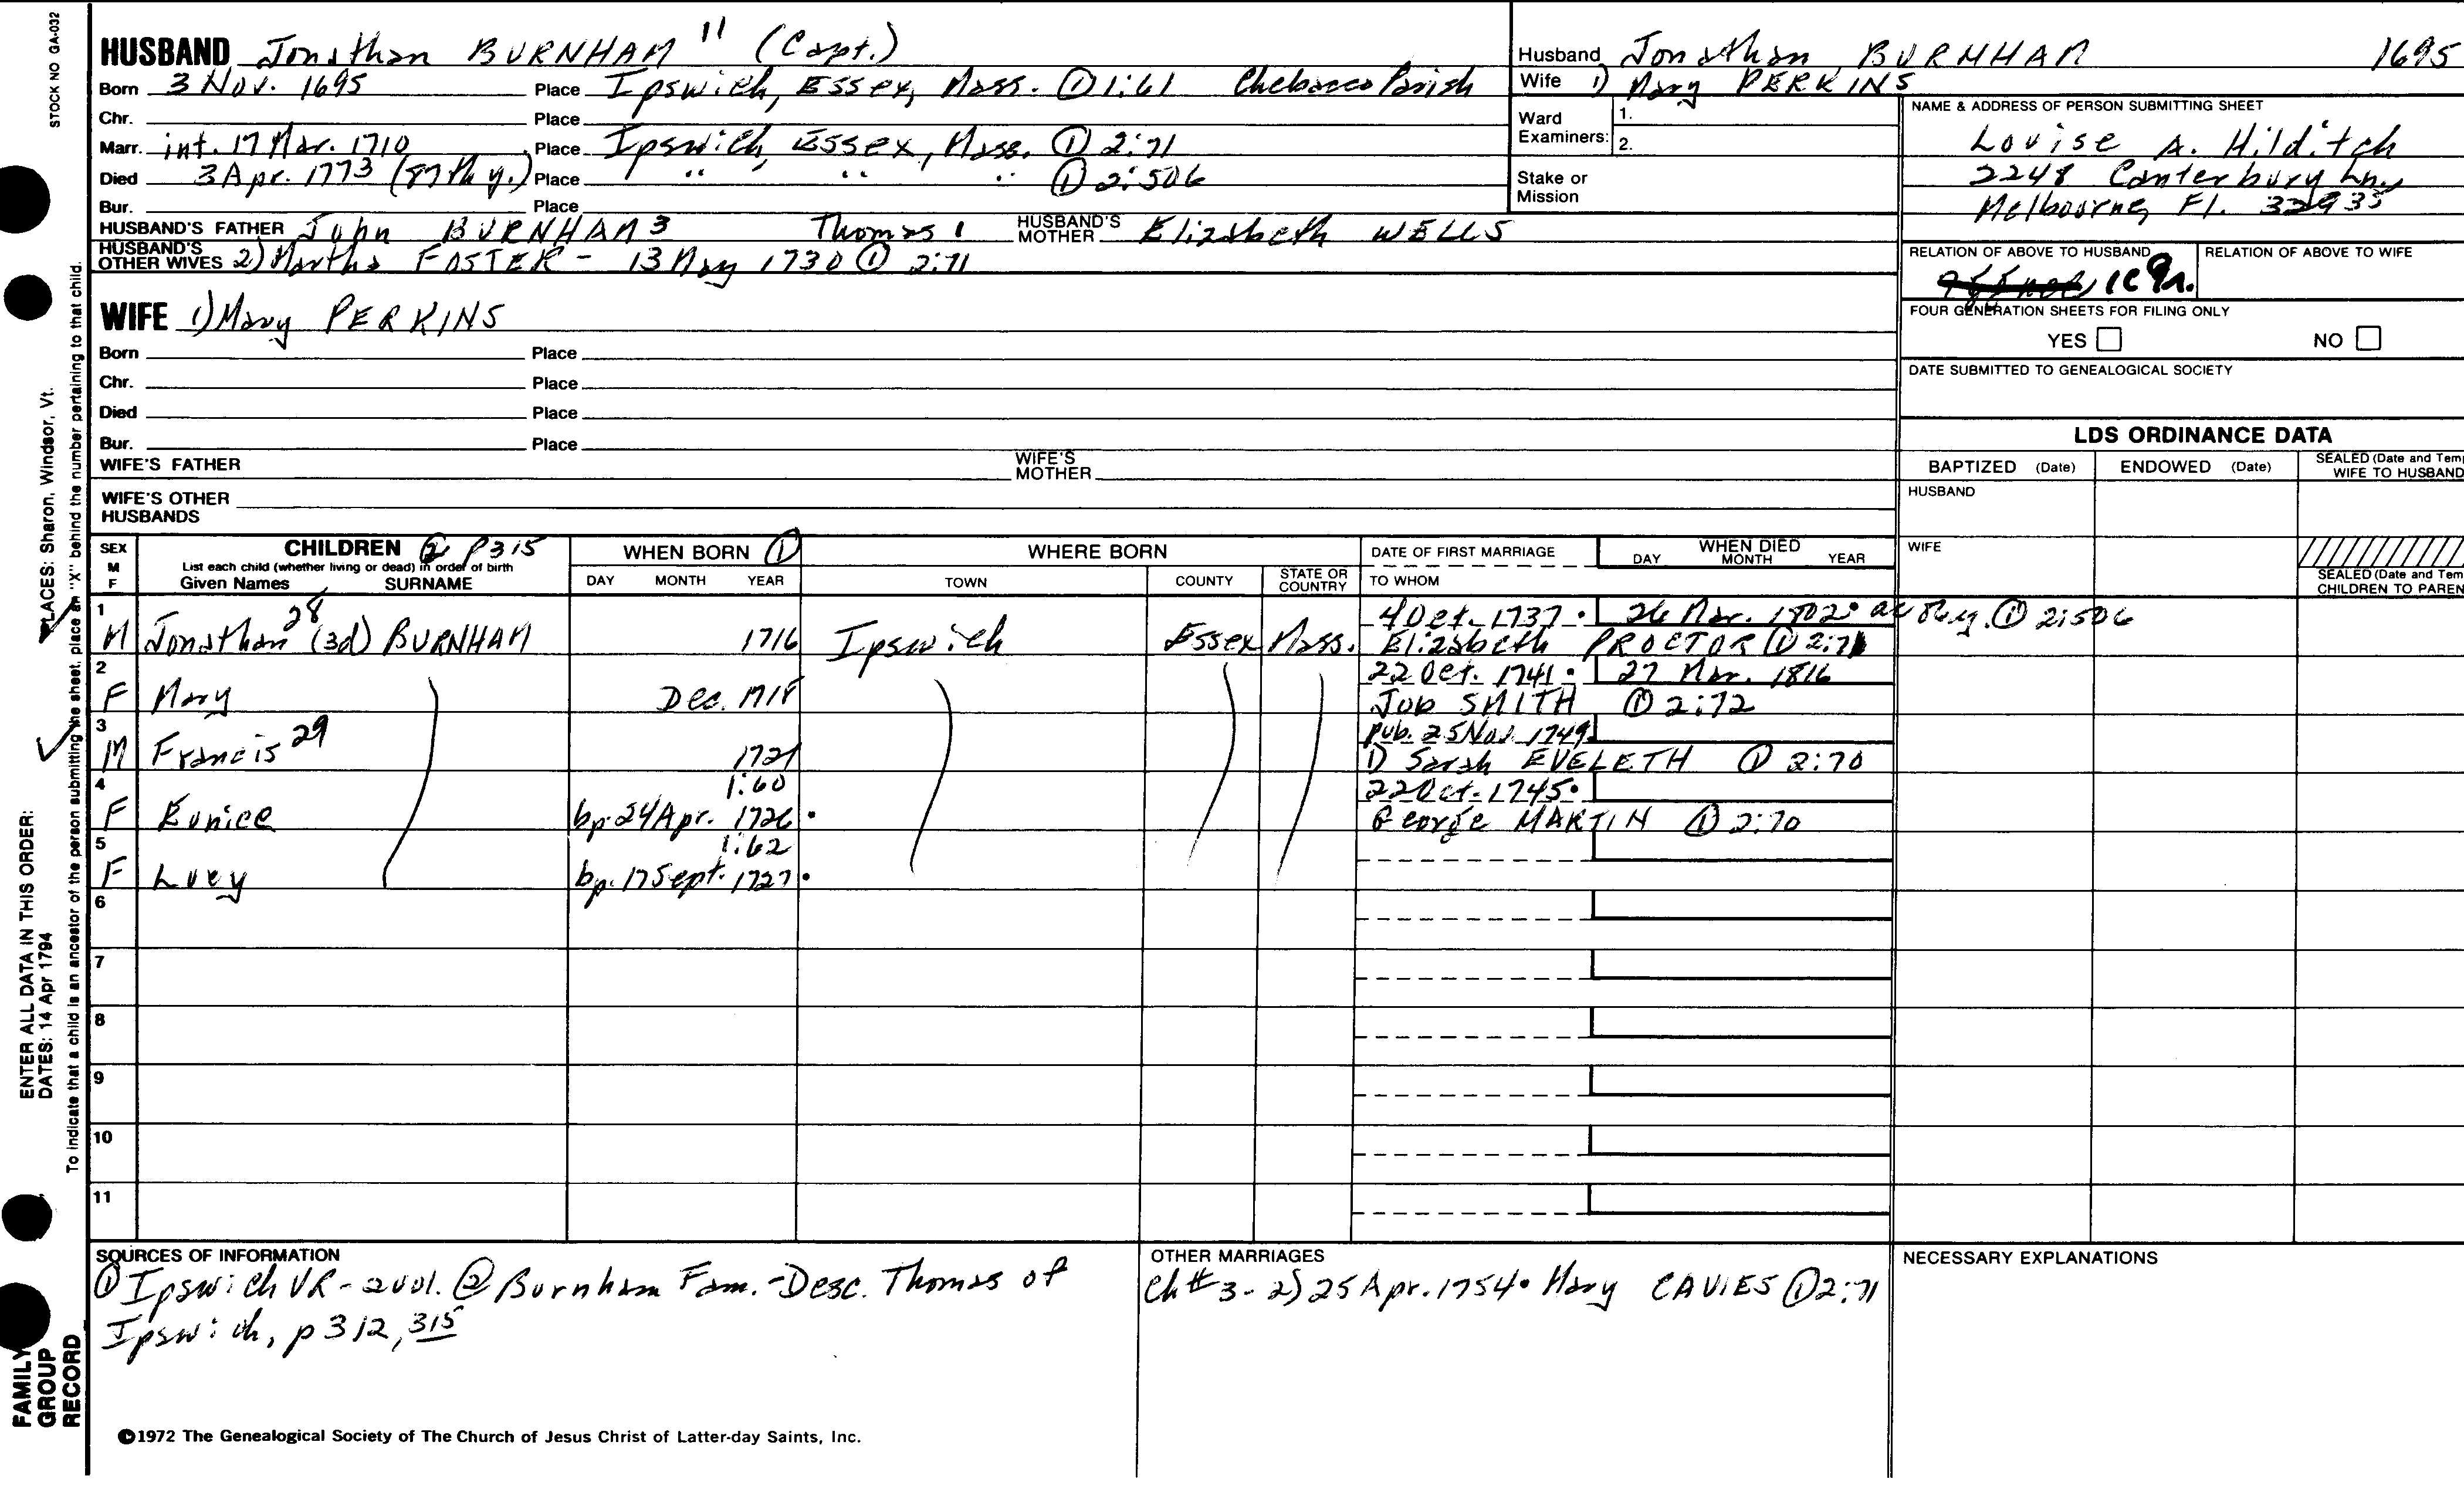 STOCK NO GA-032
HUSBAND Jonathan BURNHAM 11 (Capt.)
Born 3 Nov. 1695 Place Ipswich, Essex, Mass. ① 1:61 Chebacco Parish
Chr. Place
Marr. int. 17 Mar. 1710 Place Ipswich, Essex, Mass. ① 2:71
Died 3 Apr. 1773 (87th y.) Place " " " ① 2:506
Bur. Place
HUSBAND'S FATHER John BURNHAM 3 Thomas 1 HUSBAND'S MOTHER Elizabeth WELLS
HUSBAND'S OTHER WIVES 2) Martha FOSTER - 13 May 1730 ① 2:71
WIFE 1) Mary PERKINS
Born Place
Chr. Place
Died Place
Bur. Place
WIFE'S FATHER WIFE'S MOTHER
WIFE'S OTHER HUSBANDS
Husband Jonathan BURNHAM 1695
Wife 1) Mary PERKINS
Ward Examiners: 1.
2.
Stake or Mission
NAME & ADDRESS OF PERSON SUBMITTING SHEET
Louise A. Hilditch
2248 Canterbury Ln.,
Melbourne, Fl. 32935
RELATION OF ABOVE TO HUSBAND RELATION OF ABOVE TO WIFE
FOUR GENERATION SHEETS FOR FILING ONLY
YES NO
DATE SUBMITTED TO GENEALOGICAL SOCIETY
LDS ORDINANCE DATA
BAPTIZED (Date) ENDOWED (Date) SEALED (Date and Tem
WIFE TO HUSBAND
HUSBAND
WIFE
SEALED (Date and Tem
CHILDREN TO PAREN
SEX M F CHILDREN ② P315 WHEN BORN ① WHERE BORN DATE OF FIRST MARRIAGE WHEN DIED
List each child (whether living or dead) in order of birth
Given Names SURNAME DAY MONTH YEAR TOWN COUNTY STATE OR COUNTRY TO WHOM DAY MONTH YEAR
1 4 Oct. 1737 · 26 Mar. 1802 · ① 2:506
M Jonathan 28 (3d) BURNHAM 1716 Ipswich Essex Mass. Elizabeth PROCTOR ① 2:71
2 22 Oct. 1741 · 27 Mar. 1816
F Mary Dec. 1718 Job SMITH ① 2:72
3 pub. 25 Nov. 1749
M Francis 29 1721 1) Sarah EVELETH ① 2:70
4 1:60 22 Oct. 1745 ·
F Eunice bp. 24 Apr. 1726 · George MARTIN ① 2:70
5 1:62
F Lucy bp. 17 Sept. 1727 ·
6
7
8
9
10
11
SOURCES OF INFORMATION
① Ipswich VR - 2 vol. ② Burnham Fam. - Desc. Thomas of
Ipswich, p 312, 315
OTHER MARRIAGES
Ch # 3 - 2) 25 Apr. 1754 · Mary CAVIES ① 2:71
NECESSARY EXPLANATIONS
©1972 The Genealogical Society of The Church of Jesus Christ of Latter-day Saints, Inc.
To indicate that a child is an ancestor of the person submitting the sheet, place an "X" behind the number pertaining to that child.
ENTER ALL DATA IN THIS ORDER:
DATES: 14 Apr 1794 PLACES: Sharon, Windsor, Vt.
FAMILY
GROUP
RECORD